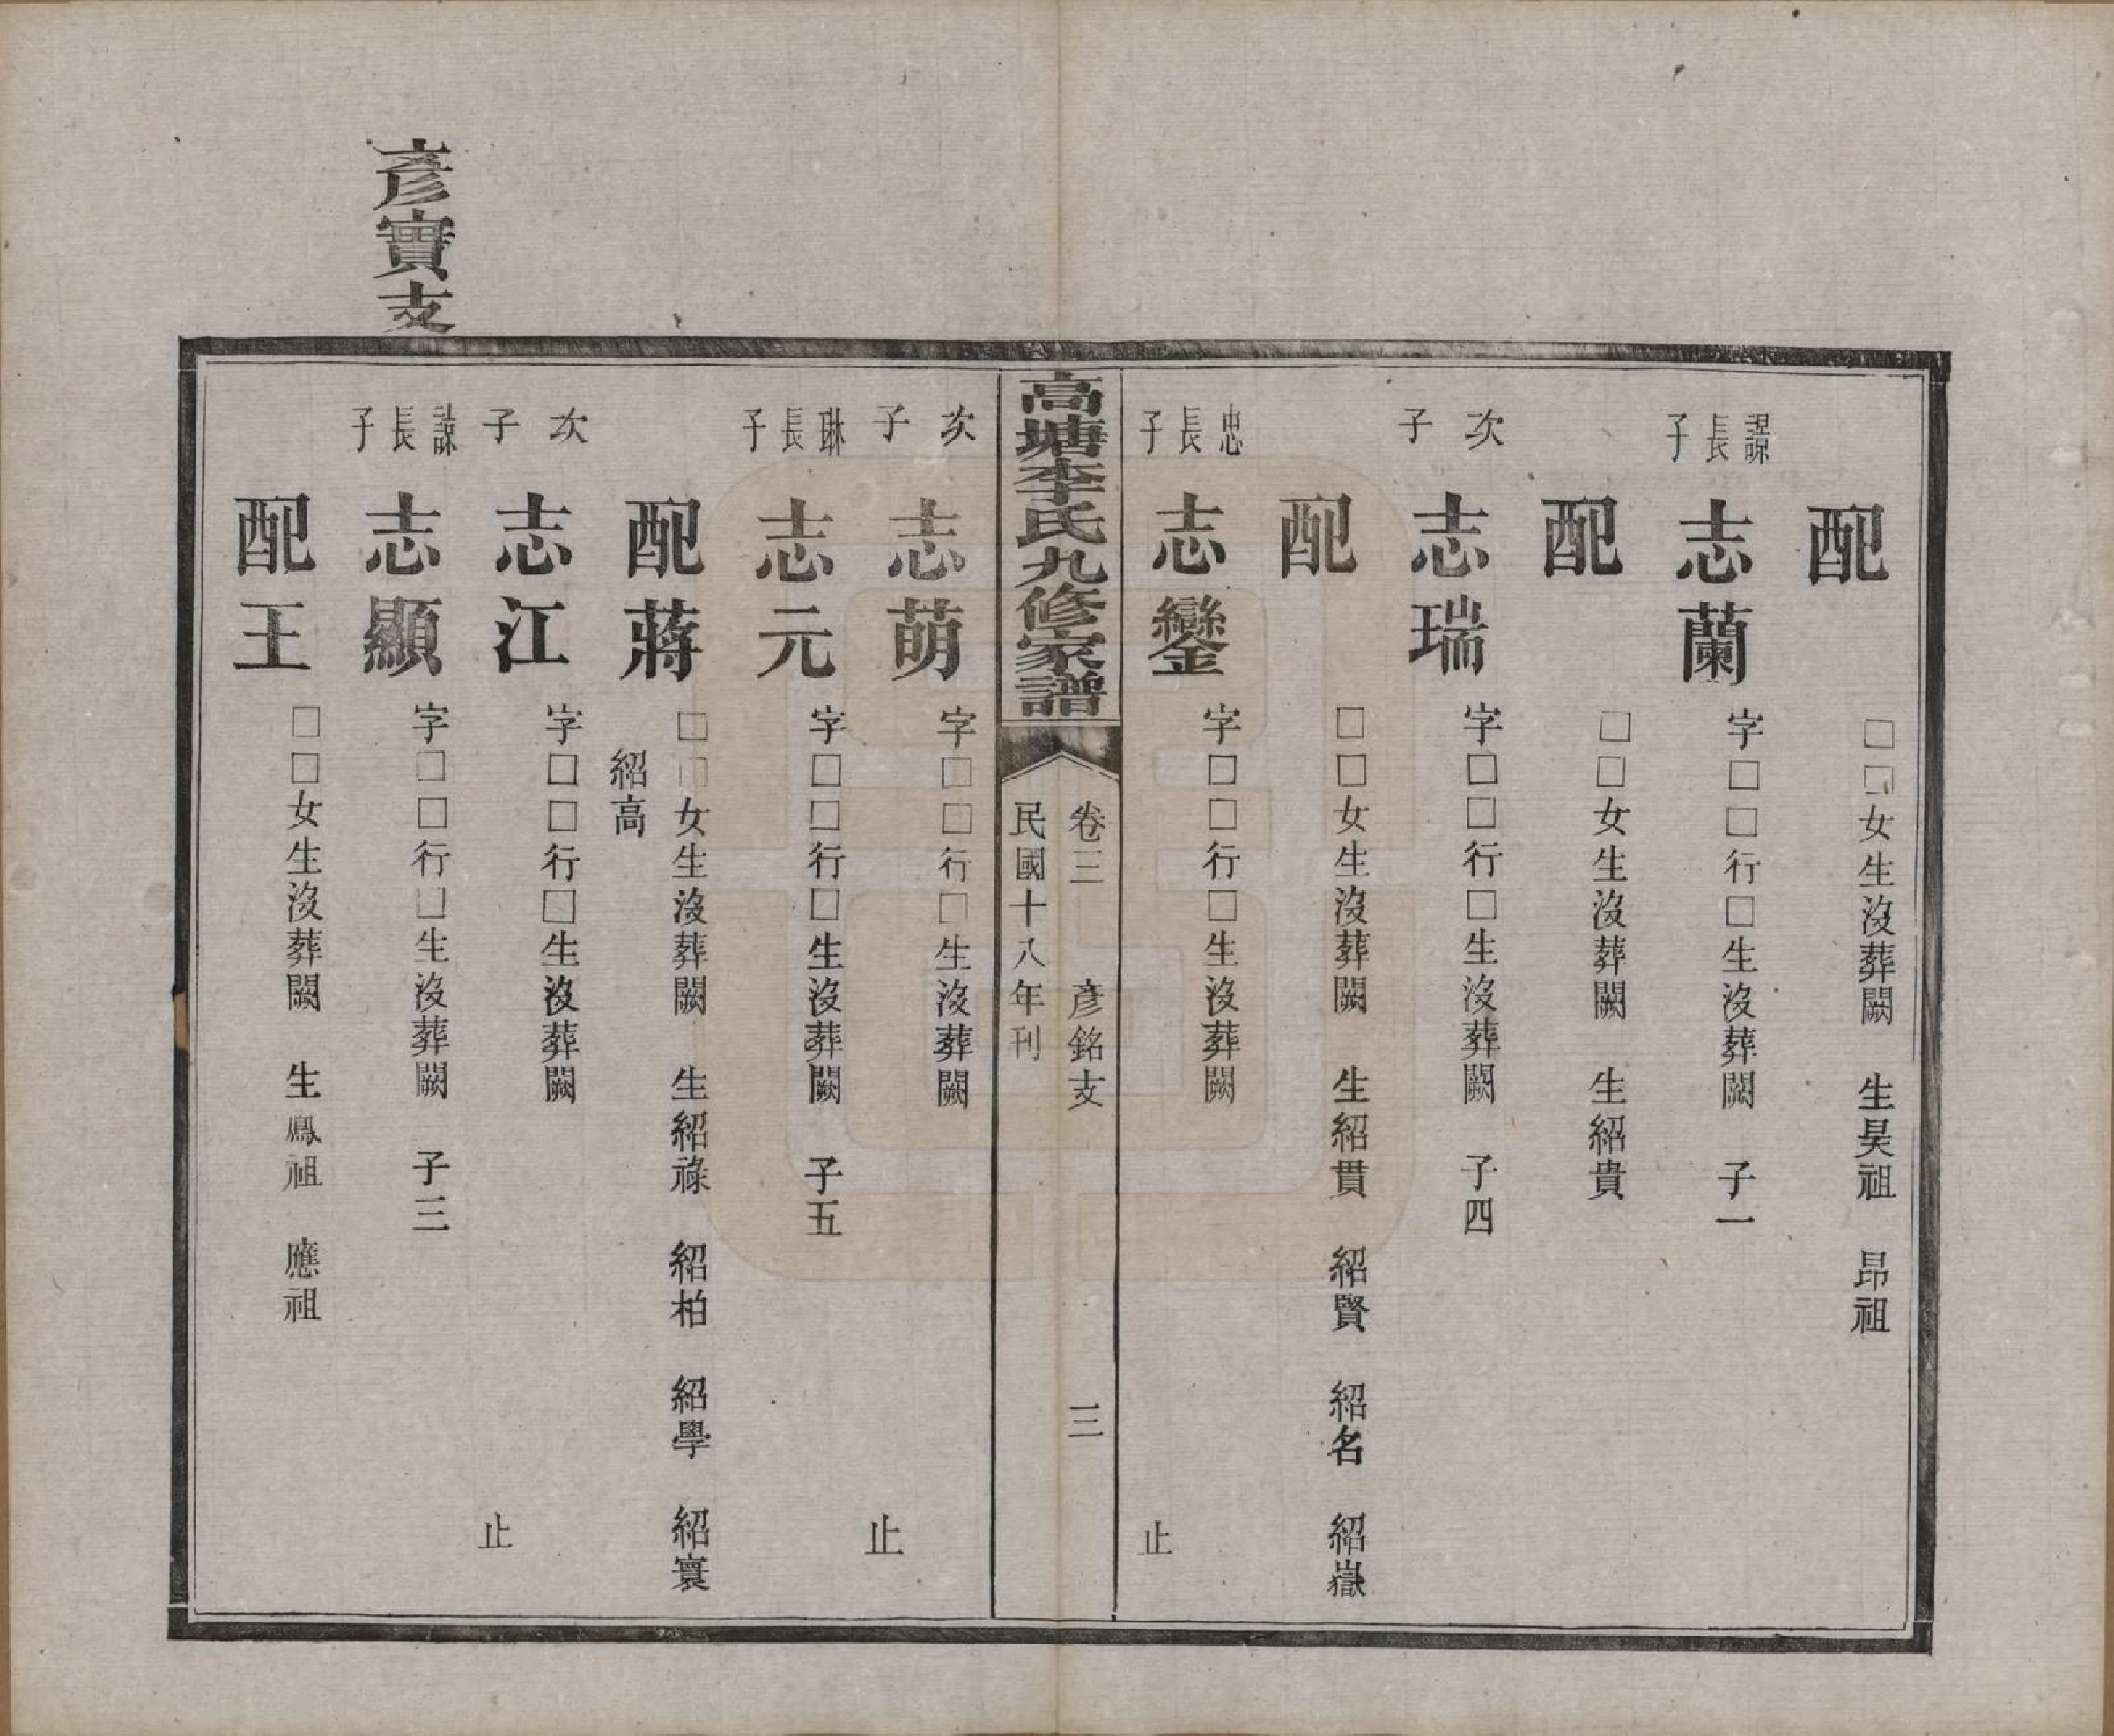 配　□□女生沒葬闕　生昊祖　昂祖
長子　志蘭　字□□行□生沒葬闕　子一
配　□□女生沒葬闕　生紹貴
次子　志瑞　字□□行□生沒葬闕　子四
配　□□女生沒葬闕　生紹貫　紹賢　紹名　紹嶽
忠長子　志鑾　字□□行□生沒葬闕　止
高塘李氏九修家譜
卷三　彥銘支　三
民國十八年刊
次子　志萌　字□□行□生沒葬闕　止
琳長子　志元　字□□行□生沒葬闕　子五
配蔣　□□女生沒葬闕　生紹祿　紹柏　紹學　紹寰
紹高
次子　志江　字□□行□生沒葬闕　止
彥實支
諒長子　志顯　字□□行□生沒葬闕　子三
配王　□□女生沒葬闕　生鳳祖　應祖